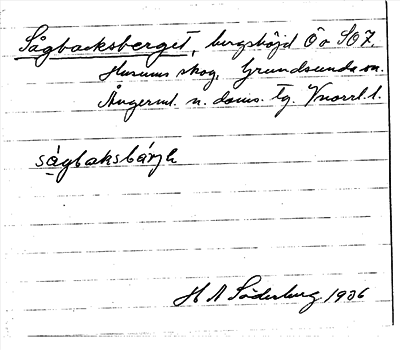 Sågbacksberget, bergshöjd Ö o SO 7,
Husums skog. Grundsunda sn.
Ångerml. n. doms. tg. Vnorrl. l.
sågbaksbárjh
H A Söderberg 1936